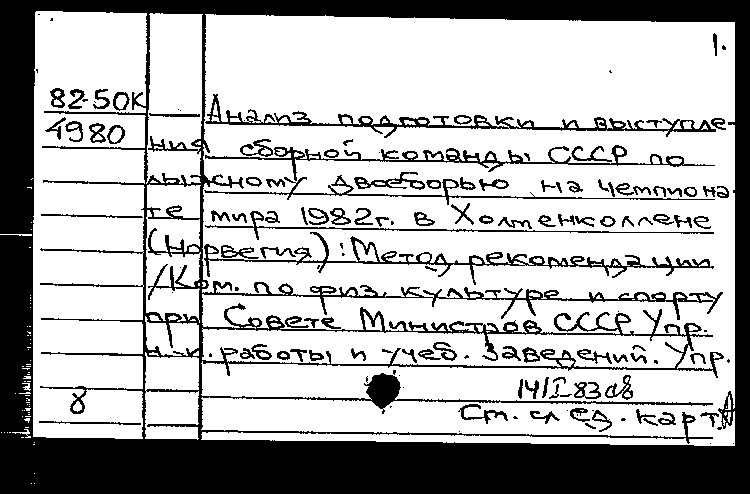 1.
82-50К
4980
Анализ подготовки и выступле-
ния сборной команды СССР по
лыжному двоеборью на чемпиона-
те мира 1982г. в Холменколлене
(Норвегия): Метод. рекомендации
/Ком. по физ. культуре и спорту
при Совете Министров СССР. Упр.
н.-и. работы и учеб. заведений. Упр.
8
14/I-83
См. след. карт.